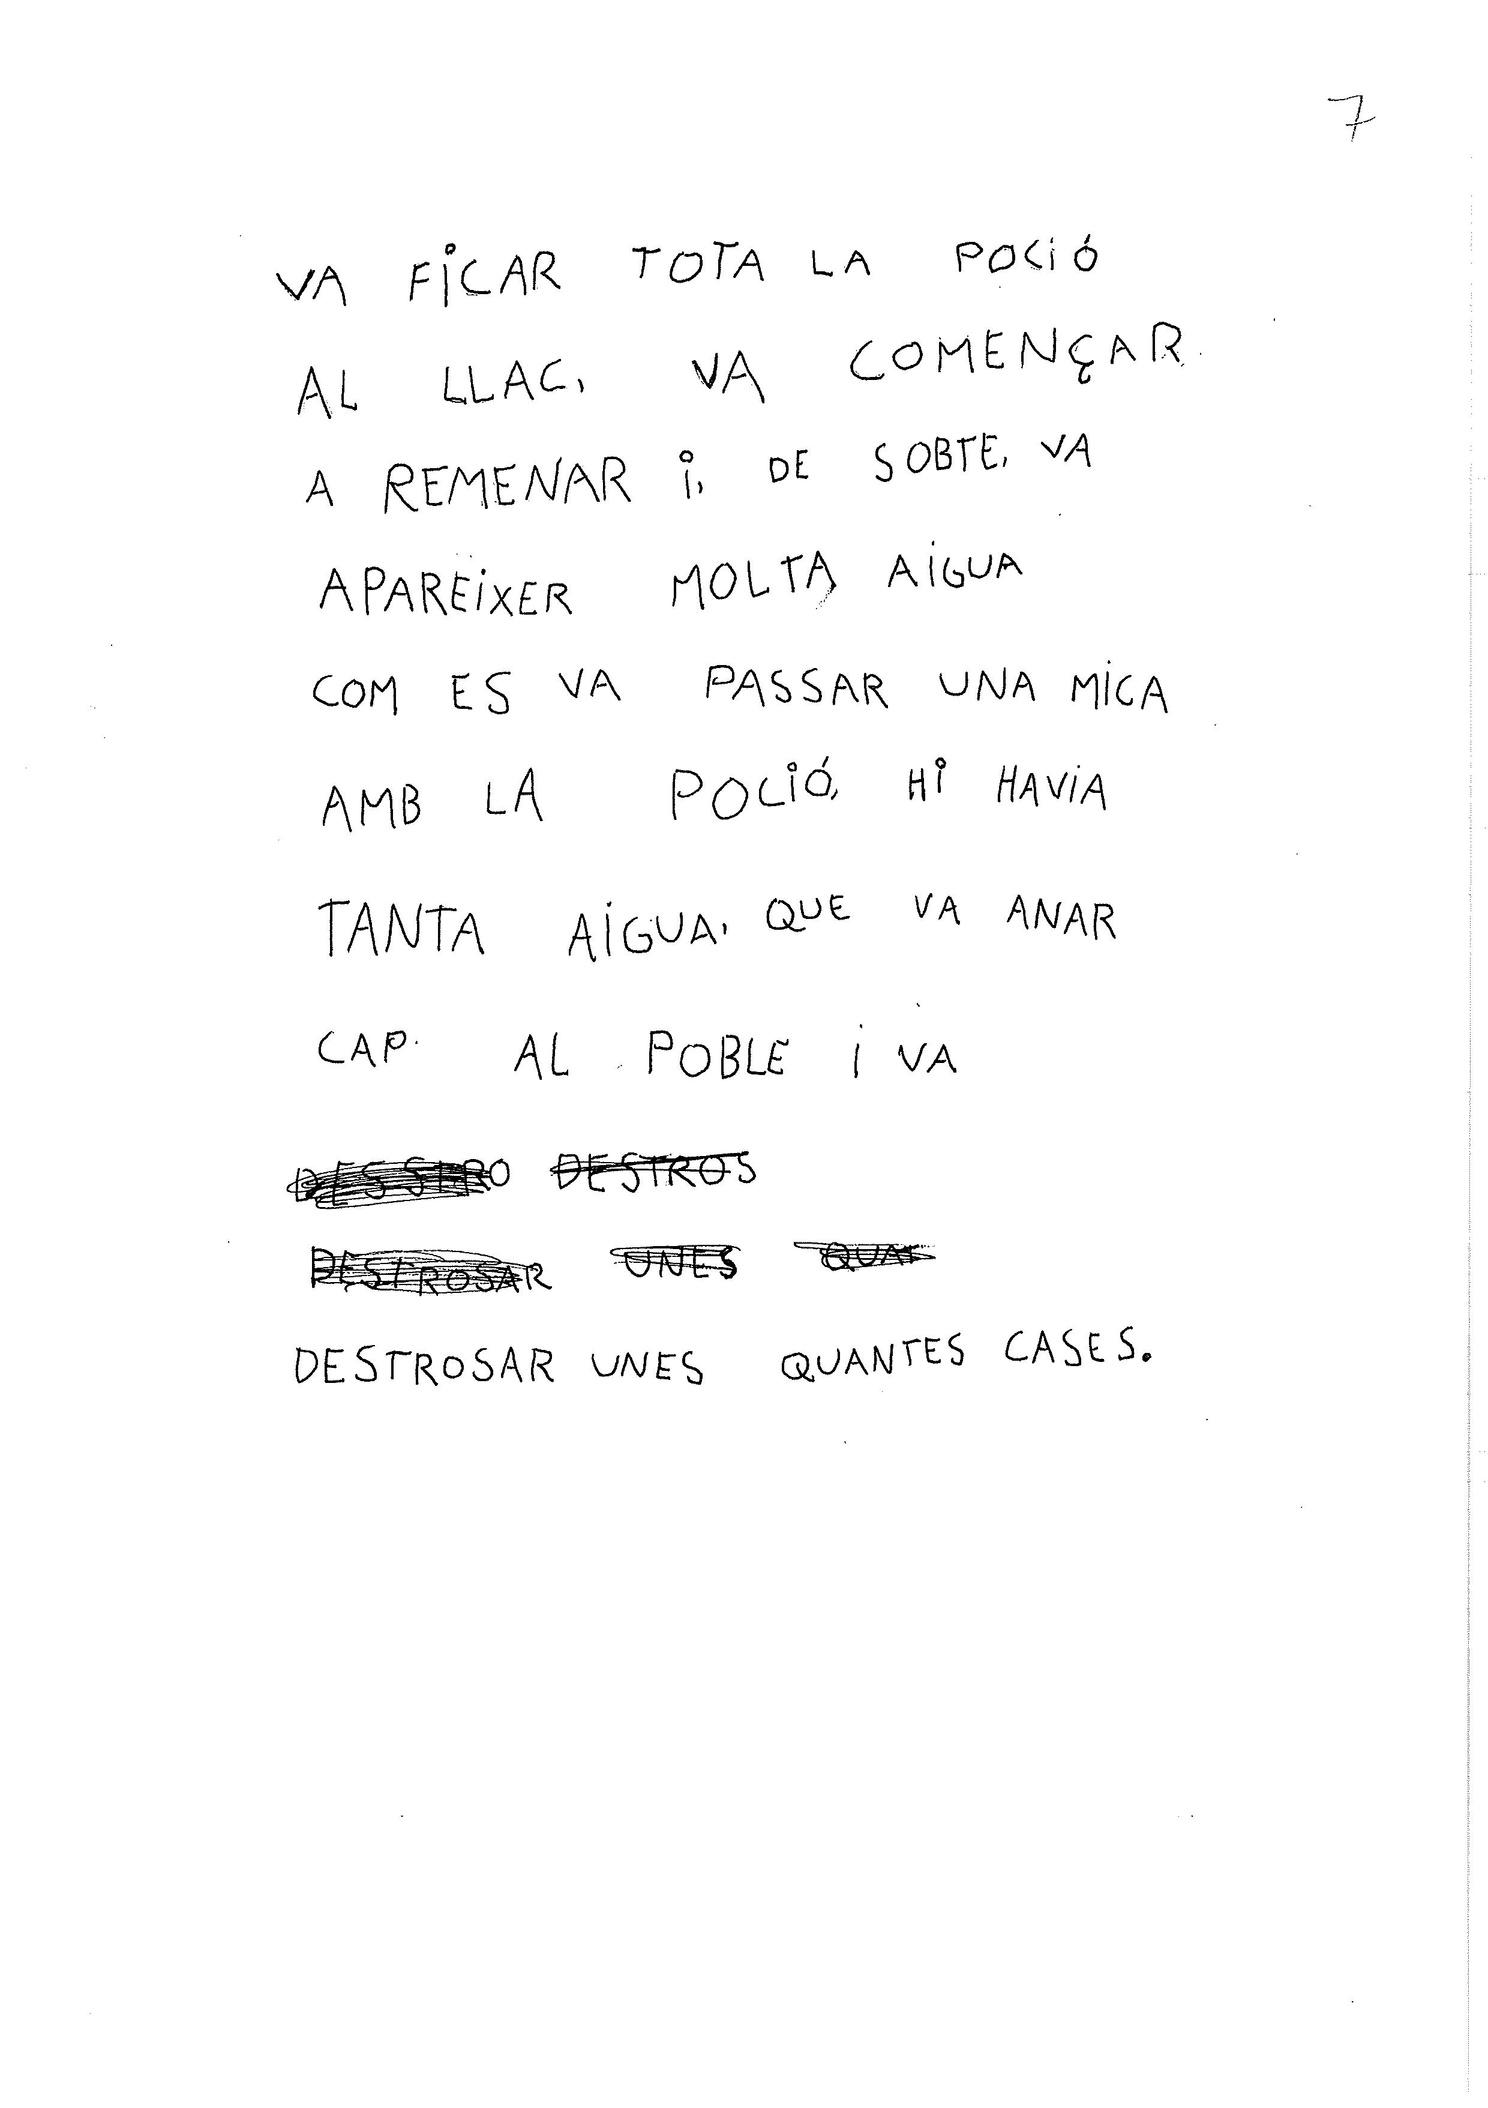 7
VA FICAR TOTA LA POCIÓ
AL LLAC, VA COMENÇAR
A REMENAR I, DE SOBTE, VA
APAREIXER MOLTA AIGUA
COM ES VA PASSAR UNA MICA
AMB LA POCIÓ, HI HAVIA
TANTA AIGUA, QUE VA ANAR
CAP AL POBLE I VA
DESTROS
DESTROSAR UNES QUA
DESTROSAR UNES QUANTES CASES.